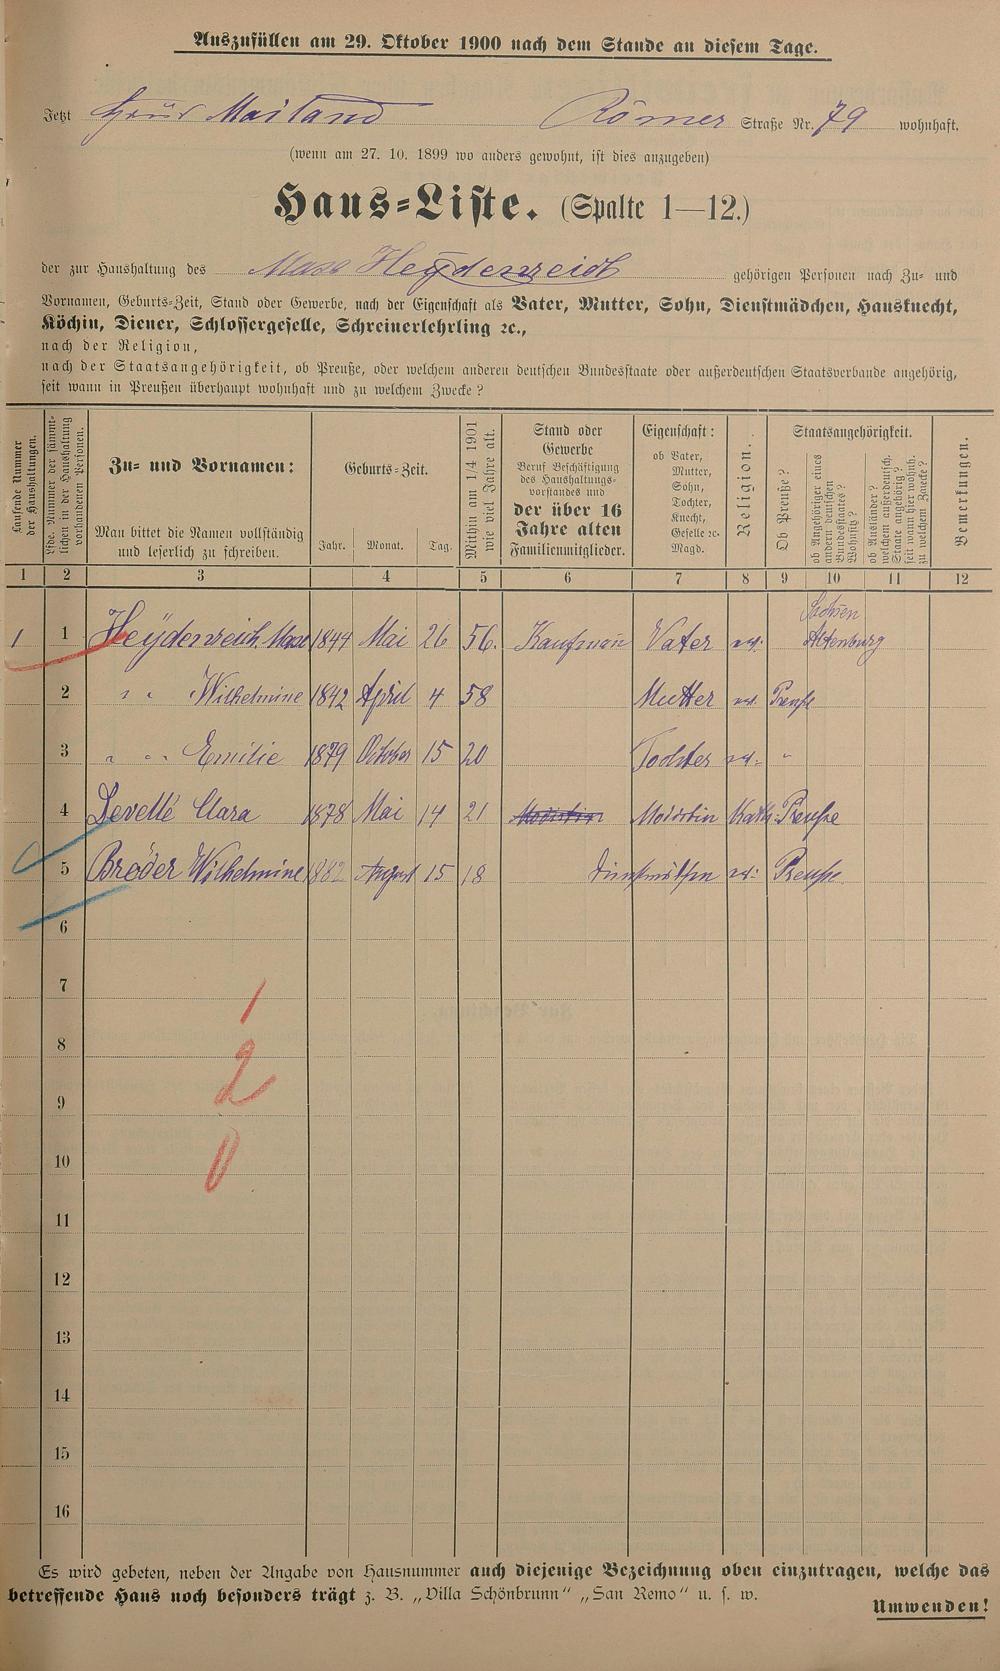 Auszufüllen am 29. Oktober 1900 nach dem Stande an diesem Tage.
Jetzt Haus Mailand Römer Straße Nr. 79 wohnhaft.
(wenn am 27. 10. 1899 wo anders gewohnt, ist dies anzugeben)
Haus-Liste. (Spalte 1—12.)
der zur Haushaltung des Max Heydenreich gehörigen Personen nach Zu- und
Vornamen, Geburts-Zeit, Stand oder Gewerbe, nach der Eigenschaft als Vater, Mutter, Sohn, Dienstmädchen, Hausknecht,
Köchin, Diener, Schlossergeselle, Schreinerlehrling ꝛc.,
nach der Religion,
nach der Staatsangehörigkeit, ob Preuße, oder welchem anderen deutschen Bundesstaate oder außerdeutschen Staatsverbande angehörig,
seit wann in Preußen überhaupt wohnhaft und zu welchem Zwecke?
Laufende Nummer der Haushaltungen.
Lfde. Nummer der sämmtlichen in der Haushaltung vorhandenen Personen.
Zu- und Vornamen:
Man bittet die Namen vollständig
und leserlich zu schreiben.
Geburts-Zeit.
Jahr. Monat. Tag.
Mithin am 1/4 1901
wie viel Jahre alt.
Stand oder
Gewerbe
Beruf Beschäftigung
des Haushaltungs-
vorstandes und
der über 16
Jahre alten
Familienmitglieder.
Eigenschaft:
ob Vater,
Mutter,
Sohn,
Tochter,
Knecht,
Geselle ꝛc.
Magd.
Religion.
Staatsangehörigkeit.
Ob Preuße?
ob Angehöriger eines
andern deutschen
Bundesstaates?
Wohnsitz?
ob Ausländer?
welchem außerdeutsch.
Staate angehörig?
seit wann hier wohnh.
zu welchem Zwecke?
Bemerkungen.
1 2 3 4 5 6 7 8 9 10 11 12
1 1 Heydenreich Max 1844 Mai 26 56. Kaufmann Vater ev: Sachsen Altenburg
2 " " Wilhelmine 1842 April 4 58 Mutter ev. Preuße
3 " " Emilie 1879 October 15 20 Tochter ev. "
4 Clara 1878 Mai 14 21 Modistin Modistin Kath: Preuße
5 Bröder Wilhelmine 1882 August 15 18 ev: Preuße
6
7
1
8
2
9
10
0
11
12
13
14
15
16
Es wird gebeten, neben der Angabe von Hausnummer auch diejenige Bezeichnung oben einzutragen, welche das
betreffende Haus noch besonders trägt z. B. „Villa Schönbrunn" „San Remo" u. s. w.
Umwenden!